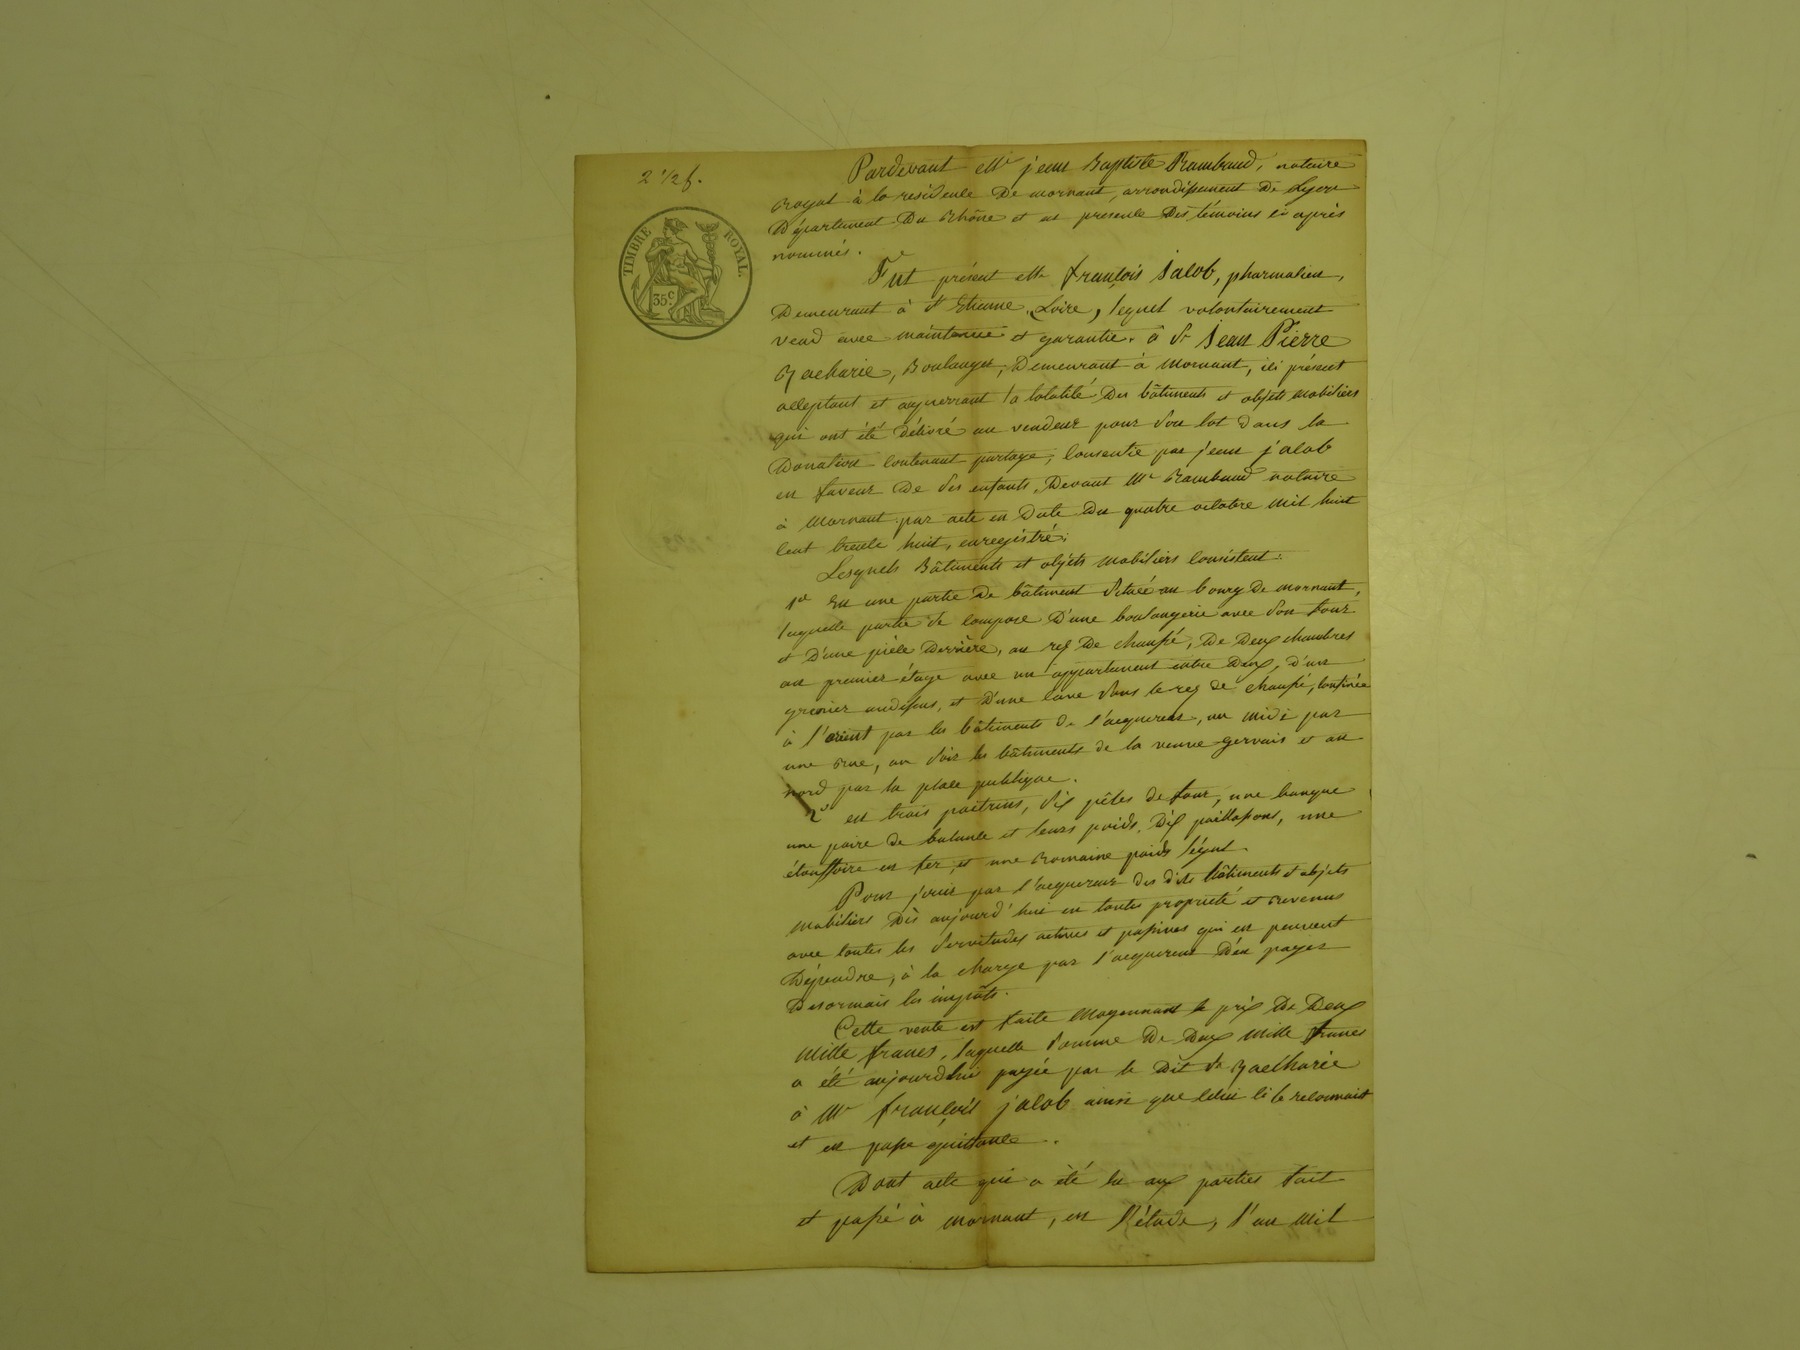 2 1/2 f.
TIMBRE ROYAL.
35 c.
Pardevant Me jean Baptiste Rambaud, notaire
Royal à la residence De mornant, arrondissement De Lyon
Département Du Rhône et en presence Des témoins ci après
nommés.
Fut présent Mr françois jacob, pharmacien,
Demeurant à St Etienne, Loire, lequel volontairement
vend avec maintenue et garantie. à Sr Jean Pierre
Zacharie, Boulanger, Demeurant à Mornant, ici présent
acceptant et acquerrant la totalité Des bâtiments et objets mobiliers
qui ont été délivré au vendeur pour son lot dans la
Donation contenant partage, consentie par jean jacob
en faveur De ses enfants, Devant Me Rambaud notaire
à Mornant par acte en Date Du quatre octobre mil huit
cent trente huit, enregistré;
Lesquels Bâtiments et objets mobiliers consistent:
1o En une partie De bâtiment située au bourg De mornant,
laquelle partie se compose D'une boulangerie avec son four
et D'une pièce Derrière, au rez De chaussé, De Deux chambres
au premier étage avec un appartement entre Deux, d'un
grenier audessus, et D'une cave sous le rez de chaussé, confinée
à l'orient par les bâtiments de l'acquereur, au midi par
une rue, au soir les bâtiments de la veuve gervais et au
nord par la place publique.
2o en trois paitrins, six pêles de four, une banque
une paire de balance et leurs poids, Dix paillassons, une
étouffoire en fer, et une romaine poids légal.
Pour jouir par l'acquereur des dits bâtiments et objets
mobiliers Dès aujourd'hui en toutes propriété et revenus
avec toutes les servitudes actives et passives qui en peuvent
Dépendre, à la charge par l'acquereur D'en payer
Desormais les impôts.
Cette vente est faite Moyennant le prix De Deux
Mille francs, laquelle somme De Deux Mille francs
a été aujourdhui payée par le Dit Sr Zacharie
à Mr françois jacob ainsi que celui ci le reconnait
et en passe quittance.
Dont acte qui a été lu aux parties fait
et passé à mornant, en l'étude, l'an Mil